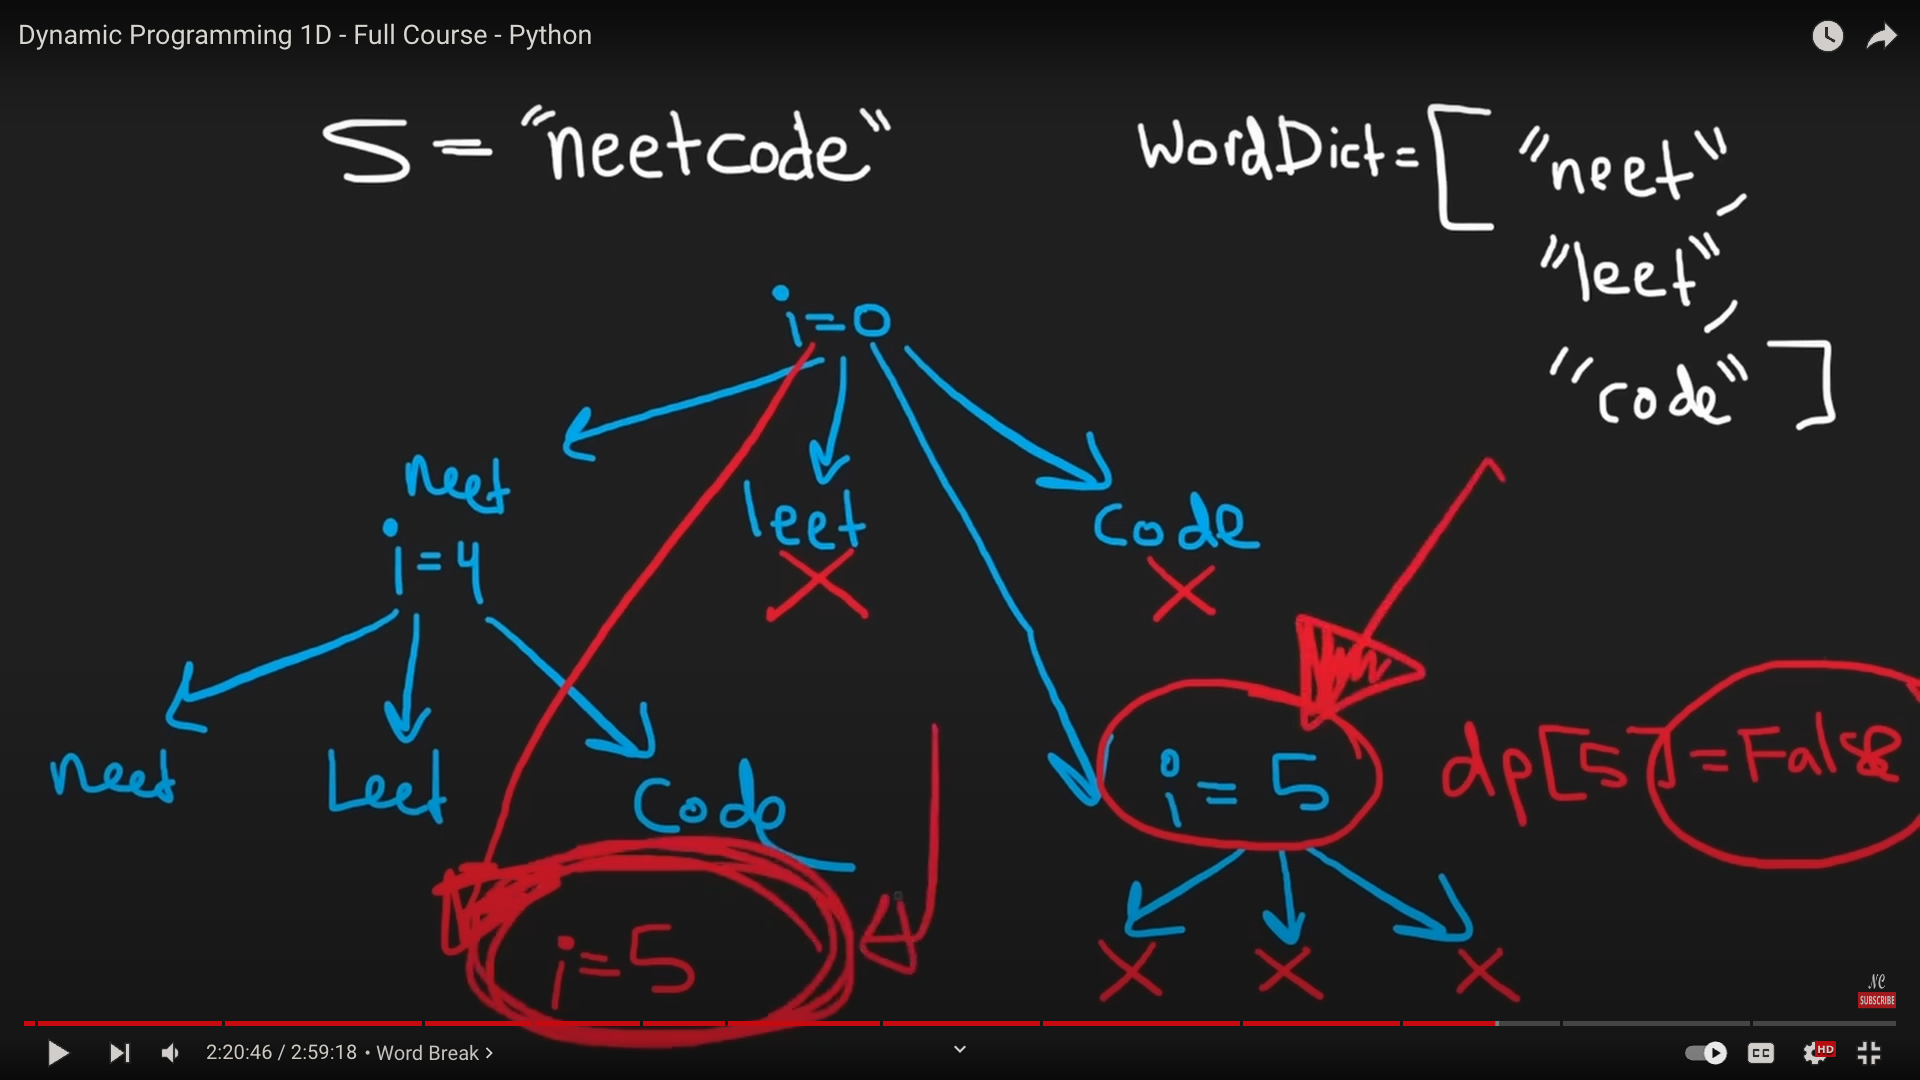 Dynamic Programming 1D - Full Course - Python
S = "neetcode"
WordDict = ["neet",
"leet",
"code"]
i=0
neet
i=4
leet
code
neet
Leet
Code
i=5
dp[5] = False
i=5
NC
SUBSCRIBE
2:20:46 / 2:59:18 • Word Break >
CC
HD